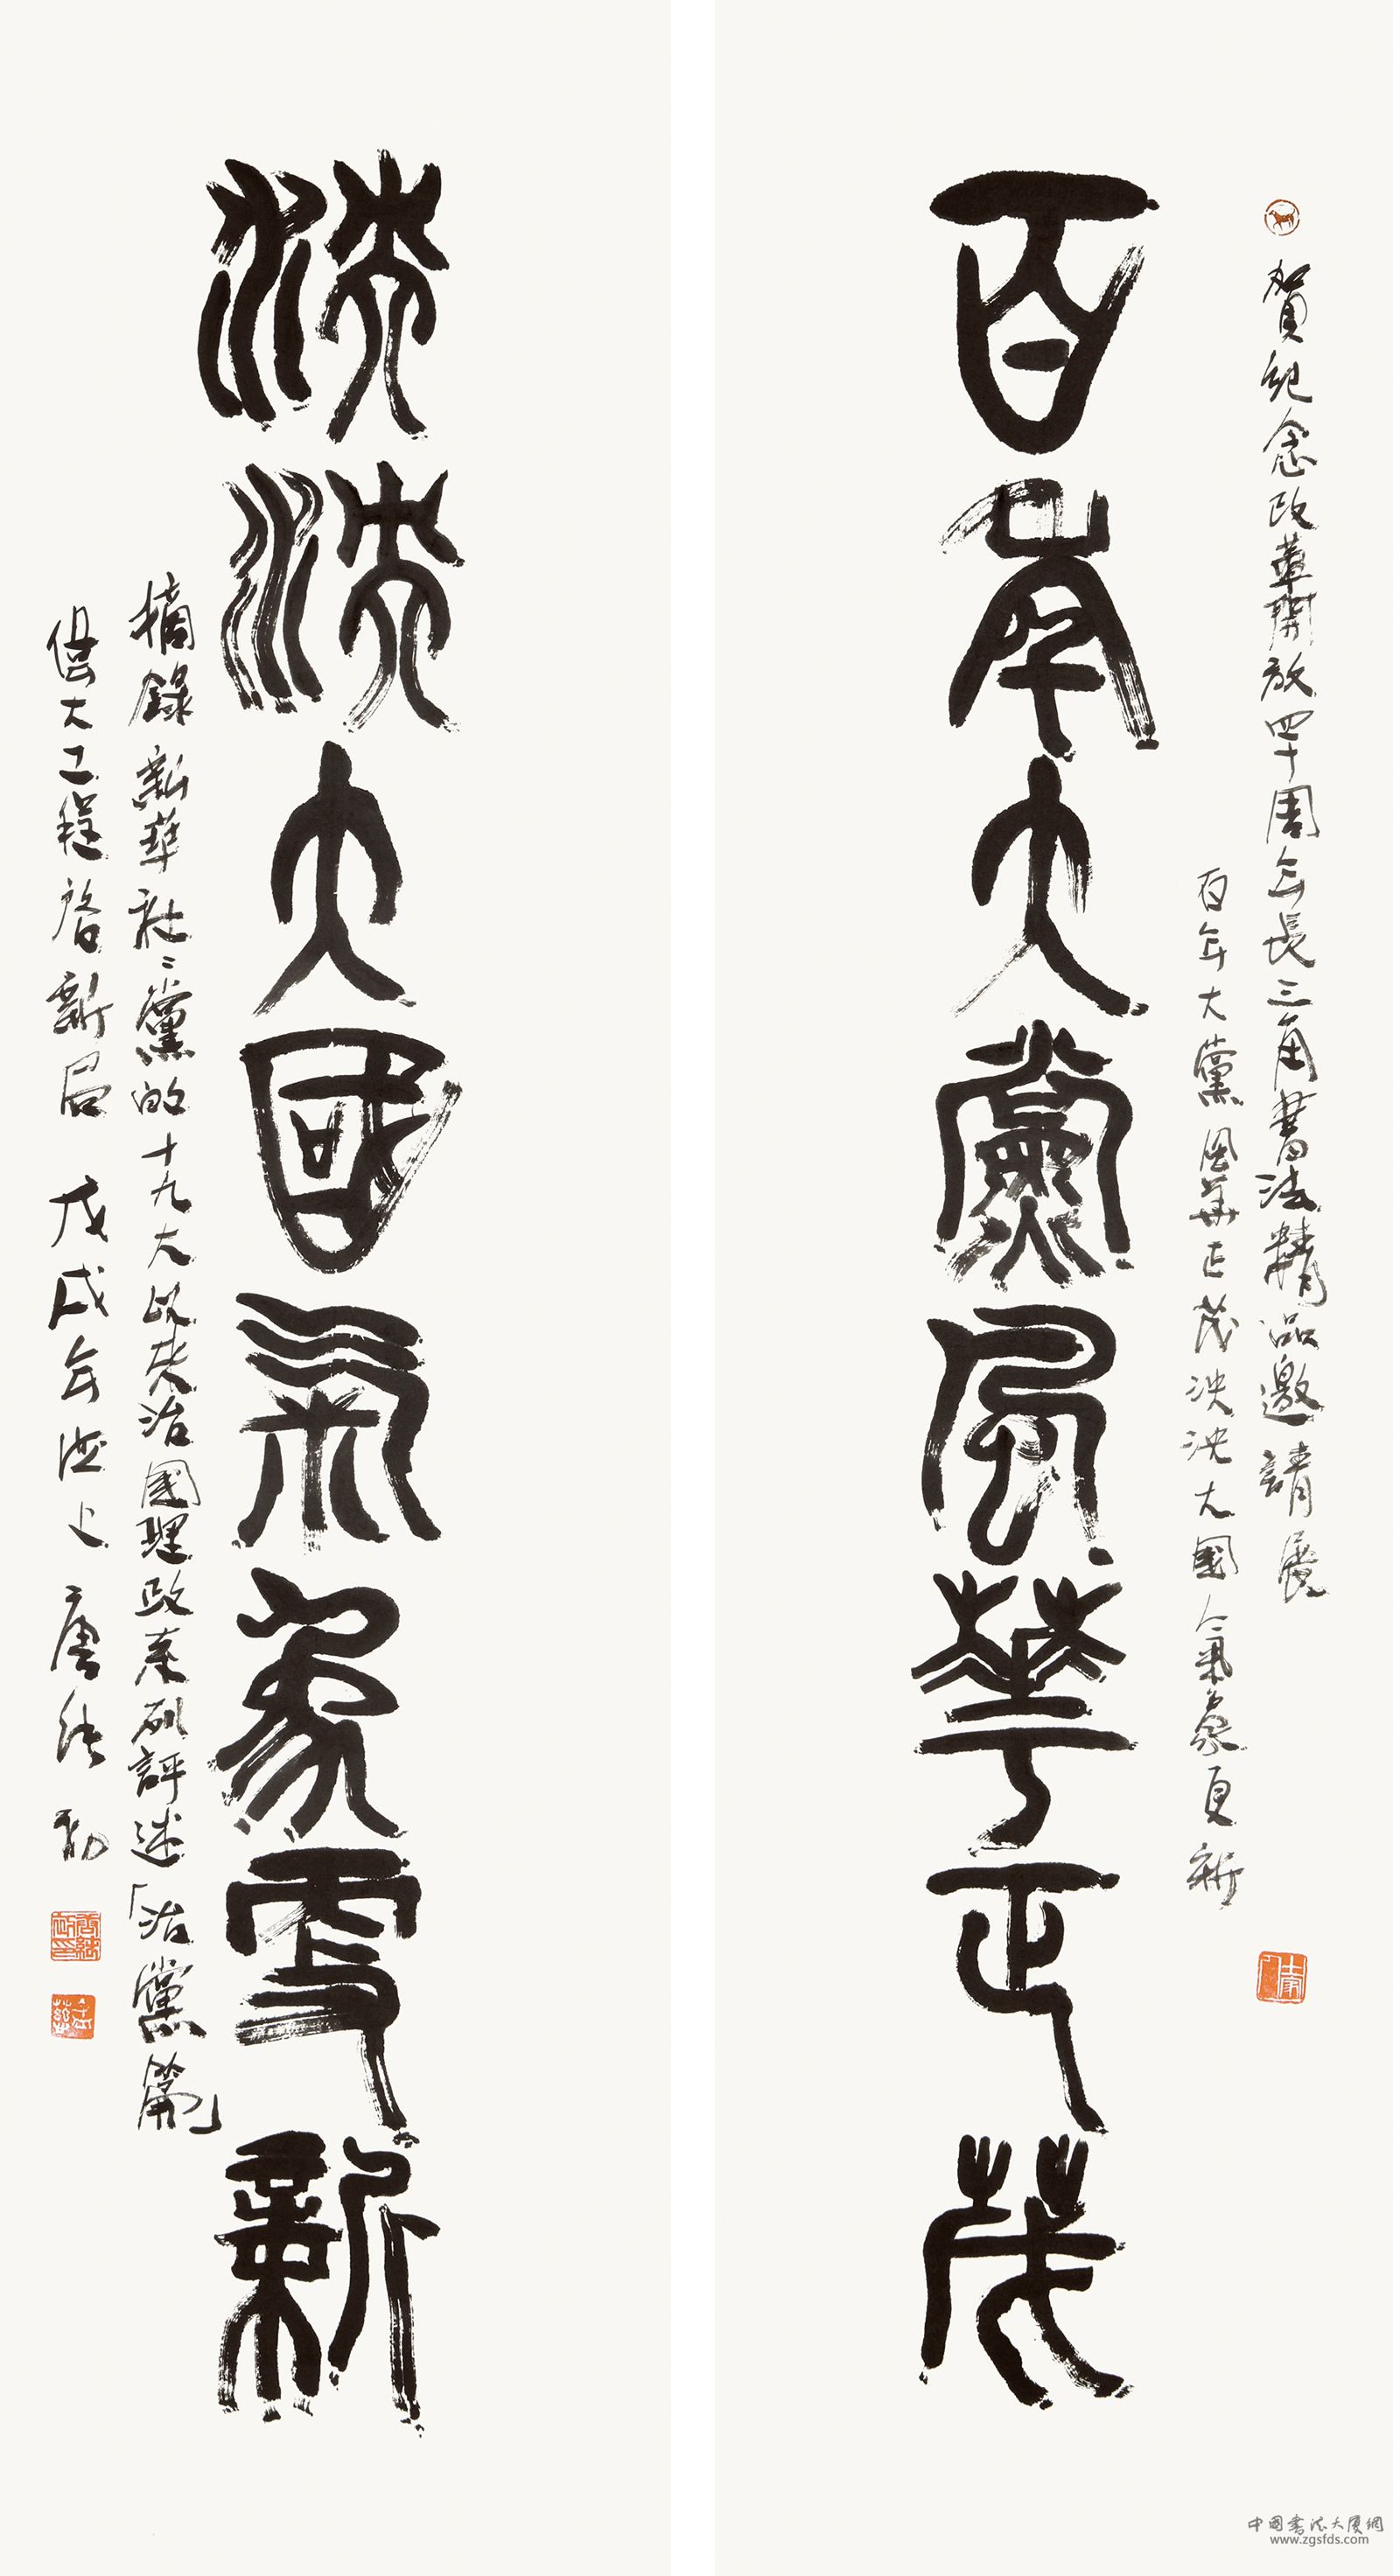 百年大黨風華正茂
泱泱大國氣象更新
賀紀念改革開放四十周年長三角書法精品邀請展
百年大黨風華正茂泱泱大國氣象更新
摘錄新華社二黨的十九大以来治國理政系列評述「治黨篇」
偉大工程啓新局 戊戌年 唐 勤
中國書法大廈網
www.zgsfds.com